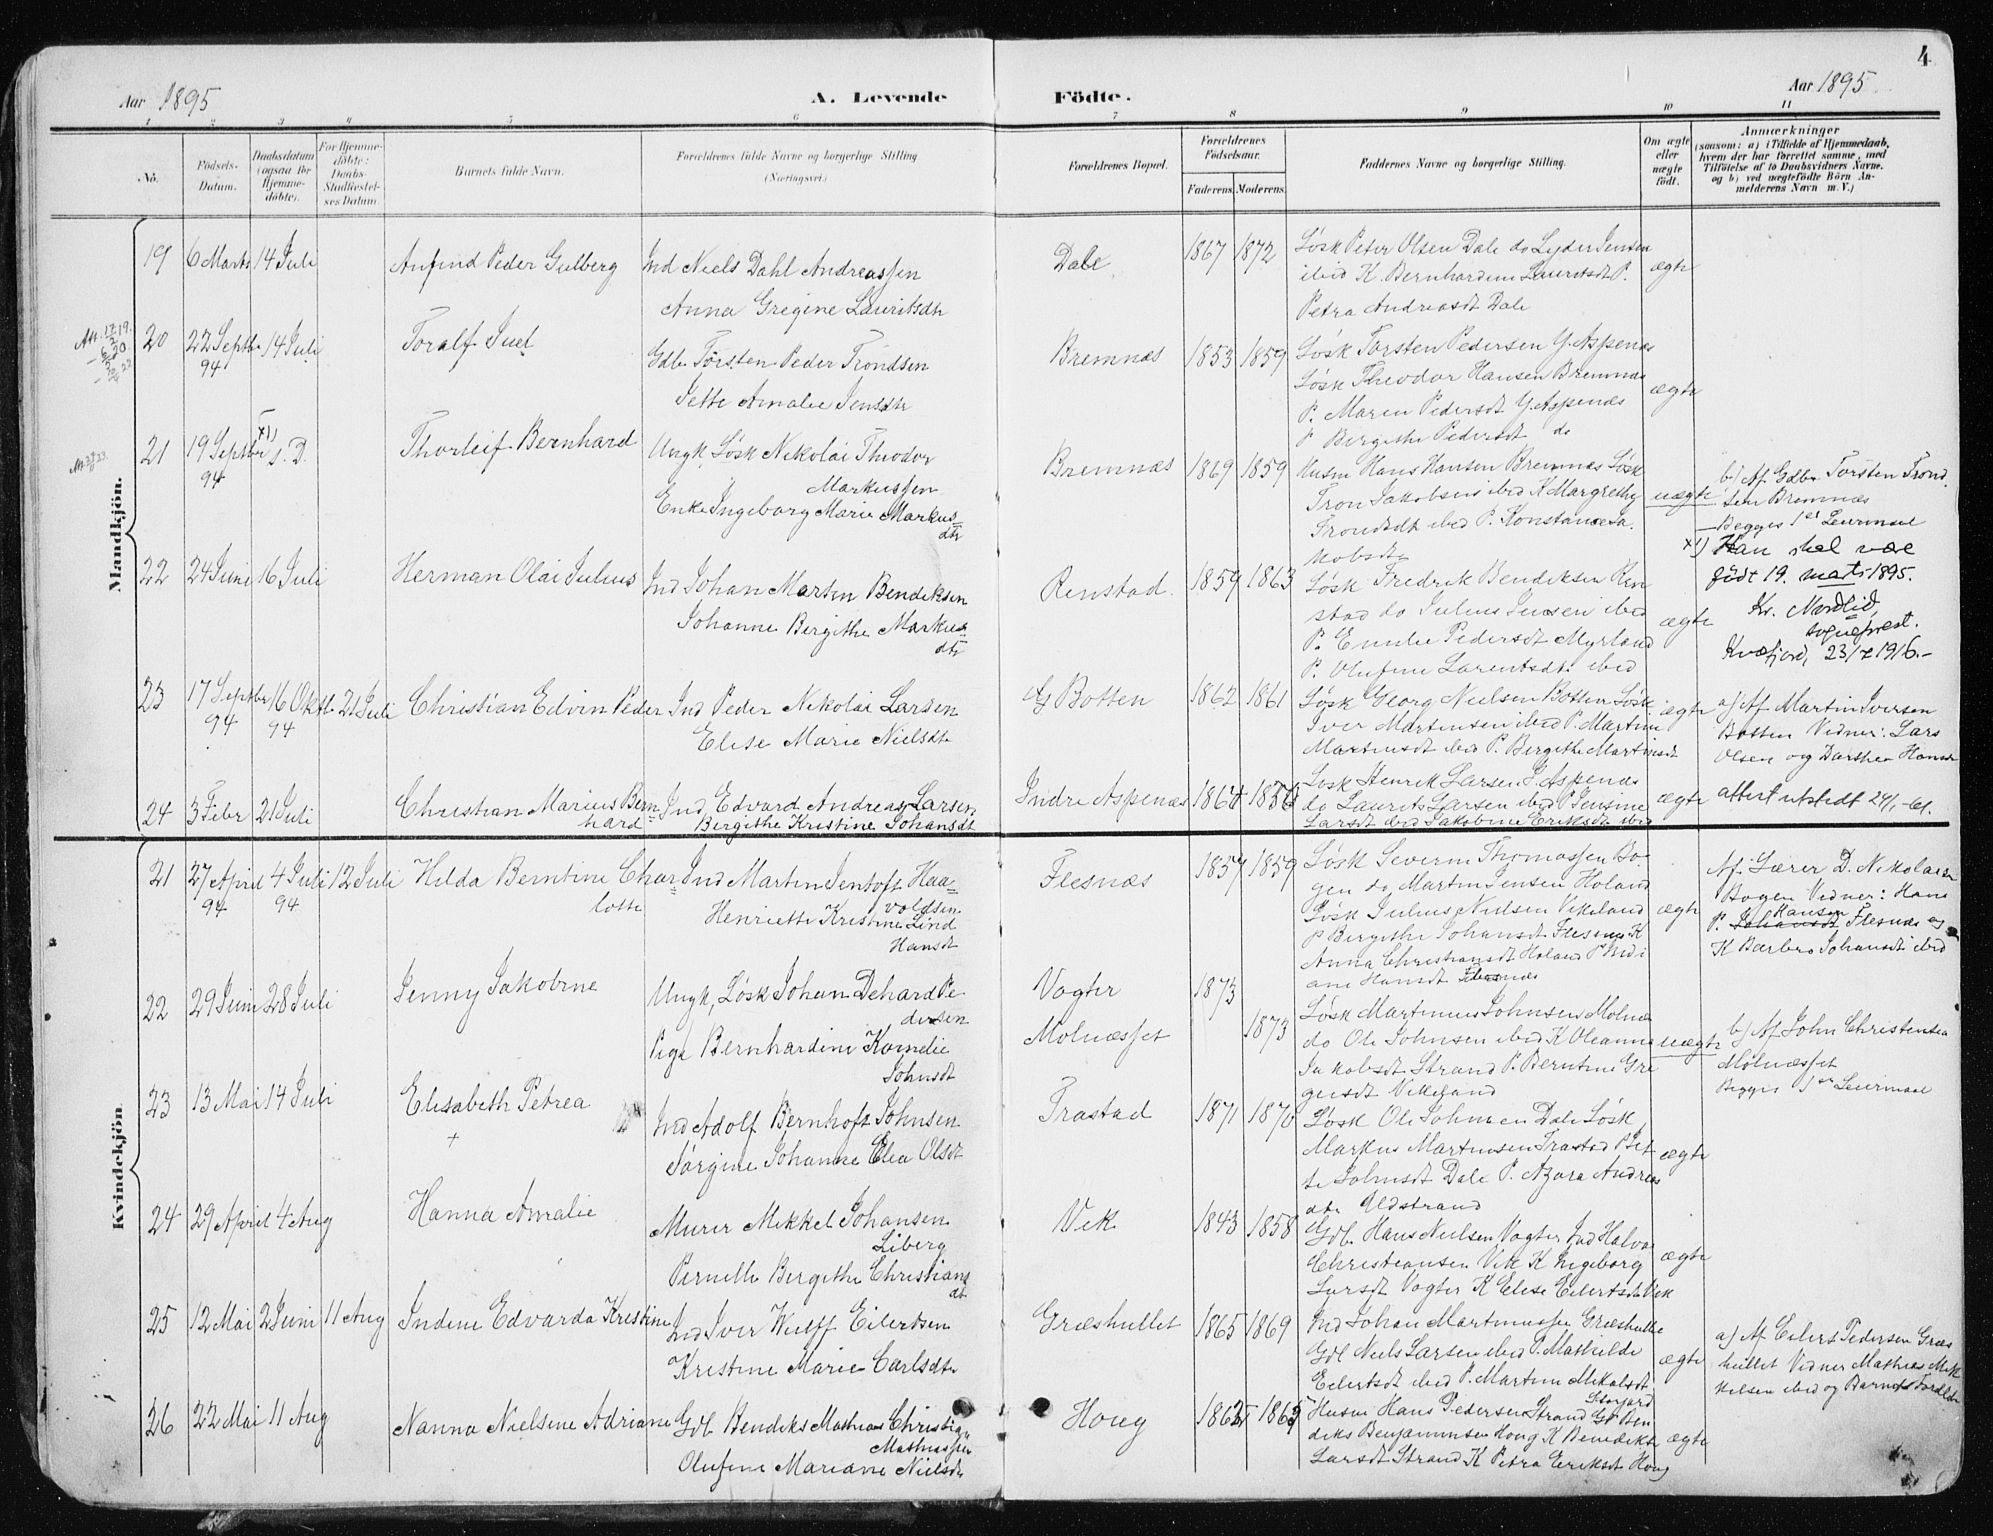 4
Aar 1895
A. Levende Födte.
Aar 1895
1 2 3 4 5 6 7 8 9 10 11
No.
Födsels-Datum.
Daabsdatum (ogsaa for Hjemme-döbte).
For Hjemme-döbte: Daabs-Stadfæstel-ses Datum.
Barnets fulde Navn.
Forældrenes fulde Navne og borgerlige Stilling
(Næringsvei.)
Forældrenes Bopæl.
Forældrenes Födselsaar.
Faderens. Moderens.
Faddernes Navne og borgerlige Stilling.
Om ægte eller uægte födt.
Anmærkninger
(saasom: a) i Tilfælde af Hjemmedaab,
hvem der har forrettet samme, med
Tilföielse af to Daabsvidners Navne,
og b) ved uægtefödte Börn An-
melderens Navn m. V.)
Mandkjön.
19 6 Marts 14 Juli Anfind Peder Gulberg Ind Niels Dahl Andreassen
Anna Gregine Lauritsdtr
Dale 1867 1872 Løsk Peter Olsen Dale do Lyder Jensen
ibid K Bernhardine Lauritsdt P.
Petra Andreasdt Dale
ægte
20 22 Septbr 94 14 Juli Toralf Juel Gdb Torsten Peder Trondsen
Jette Amalie Jensdtr
Bremnæs 1853 1859 Løsk Torsten Pedersen Y. Aspenæs
Løsk Theodor Hansen Bremnæs
P. Maren Pedersdt Y. Aspenæs
P Bergithe Pedersdt do
ægte
21 19 Septbr 94 x1) s. D. Thorleif Bernhard Ungk, Løsk Nikolai Theodor
Markussen
Enke Ingeborg Marie Markus=
dtr
Bremnæs 1869 1859 Husm Hans Hansen Bremnæs Løsk
Tron Jakobsen ibid K Margrethe
Trondsdt ibid P. Konstanse Ja
kobsdt
uægte
b) Af Gdbr Torsten Trond
sen Bremnæs
Begges 1ste Leiermaal
x1) Han skal være
født 19. marts 1895.
Kr. Nordlid,
sogneprest.
Kvæfjord, 23/7 1916.-
22 24 Juni 16 Juli Herman Olai Julius Ind Johan Marten Bendiksen
Johanne Bergithe Markus=
dtr
Renstad 1859 1863 Løsk Fredrik Bendiksen Ren
stad do Julius Jensen ibid
P. Emilie Pedersdt Myrland
P. Olufine Larentsdt: ibid
ægte
23 17 Septbr 94 16 Oktb 94 21 Juli Christian Edvin Peder Ind Peder Nikolai Larsen
Elise Marie Nielsdt
G Botten 1862 1861 Løsk Georg Nielsen Botten Løsk
Iver Martinsen ibid P. Martine
Martinsdt ibid P. Bergithe Martinsdt
ægte
a) Af Martin Iversen
Botten Vidner: Lars
Olsen og Darthea Hansd
24 3 Febr 21 Juli Christian Marius Bern=
hard
Ind Edvard Andreas Larsen
Bergithe Kristine Johansdt
Indre Aspenæs Løsk Henrik Larsen I. Aspenæs
do Laurits Larsen ibid P Jensine
Larsdt ibid Jakobine Eriksdt ibid
ægte
attest utstedt 24/1-61.
Kvindekjön.
21 27 April 94 4 Juli 94 12 Juli Hilda Berntine Char=
lotte
Ind Martin Jentoft Haa=
voldsen
Henriette Kristine Lind
Hansdt
Flesnæs 1857 1859 Løsk Severin Thomassen Bo
gen do, Martin Jensen Holand
Løsk Julius Nielsen Vikeland
P Bergithe Johansdt Flesnæs K
Anna Christiansdt Holand P Indi
ane Hansdt Flesnæs
ægte
Af Lærer D. Nikolaisen
Bogen Vidner: Hans
P. Johansdt Hansen Flesnæs og
K Barbro Johansdt ibid
22 29 Juni 28 Juli Jenny Jakobine Ungk, Løsk Johan Dehard Pe
dersen
Pige Bernhardine Kornelie
Johnsdt
Vogter 1873
Molnæsset 1873
Løsk Martinus Johnsen Molnæs
do Ole Johnsen ibid K Oleanna
Jakobsdt Strand P. Berntine Gre
gersdt Vikeland
uægte
b) Af John Christensen
Molnæsset
Begges 1ste Leiermaal
23 13 Mai 14 Juli Elisabeth Petrea
+
Ind Adolf Bernhoft Johnsen
Jørgine Johanne Elea Olsdt
Trastad 1871 1870 Løsk Ole Johnsen Dale Løsk
Markus Martinsen Trastad P Jet
te Johnsdt Dale P. Azora Andreas
dtr Aldstrand
ægte
24 29 April 4 Aug Hanna Amalie Murer Mikkel Johansen
Liberg
Pernelle Bergithe Christians
dt
Vik 1843 1858 Gdb Hans Nielsen Vogter Ind Halvor
Christiansen Vik K Ingeborg
Larsdt Vogter K Elise Eilertsdt Vik
ægte
25 12 Mai 2 Juni 11 Aug Indine Edvarda Kristine Ind Iver Wulff Eilertsen
Kristine Marie Carlsdtr
Græshullet 1865 1869 Ind Johan Martinussen Græshullet
Gdb Niels Larsen ibid P. Mathilde
Eilertsdt ibid P. Martine Mikalsdt
Storjord
ægte
a) Af Eilert Pedersen Græs
hullet Vidner Mathias Mik
kelsen ibid og Barnets Forældre
26 22 Mai 11 Aug Nanna Nielsine Adriane Gdb Bendiks Mathias Christia=
Mathiassen
Olufine Mariane Nielsdtr
Houg Husm Hans Pedersen Strand Gb Ben
diks Benjaminsen Houg K Benedikte
Larsdt Strand K Petra Eriksdt Houg
ægte